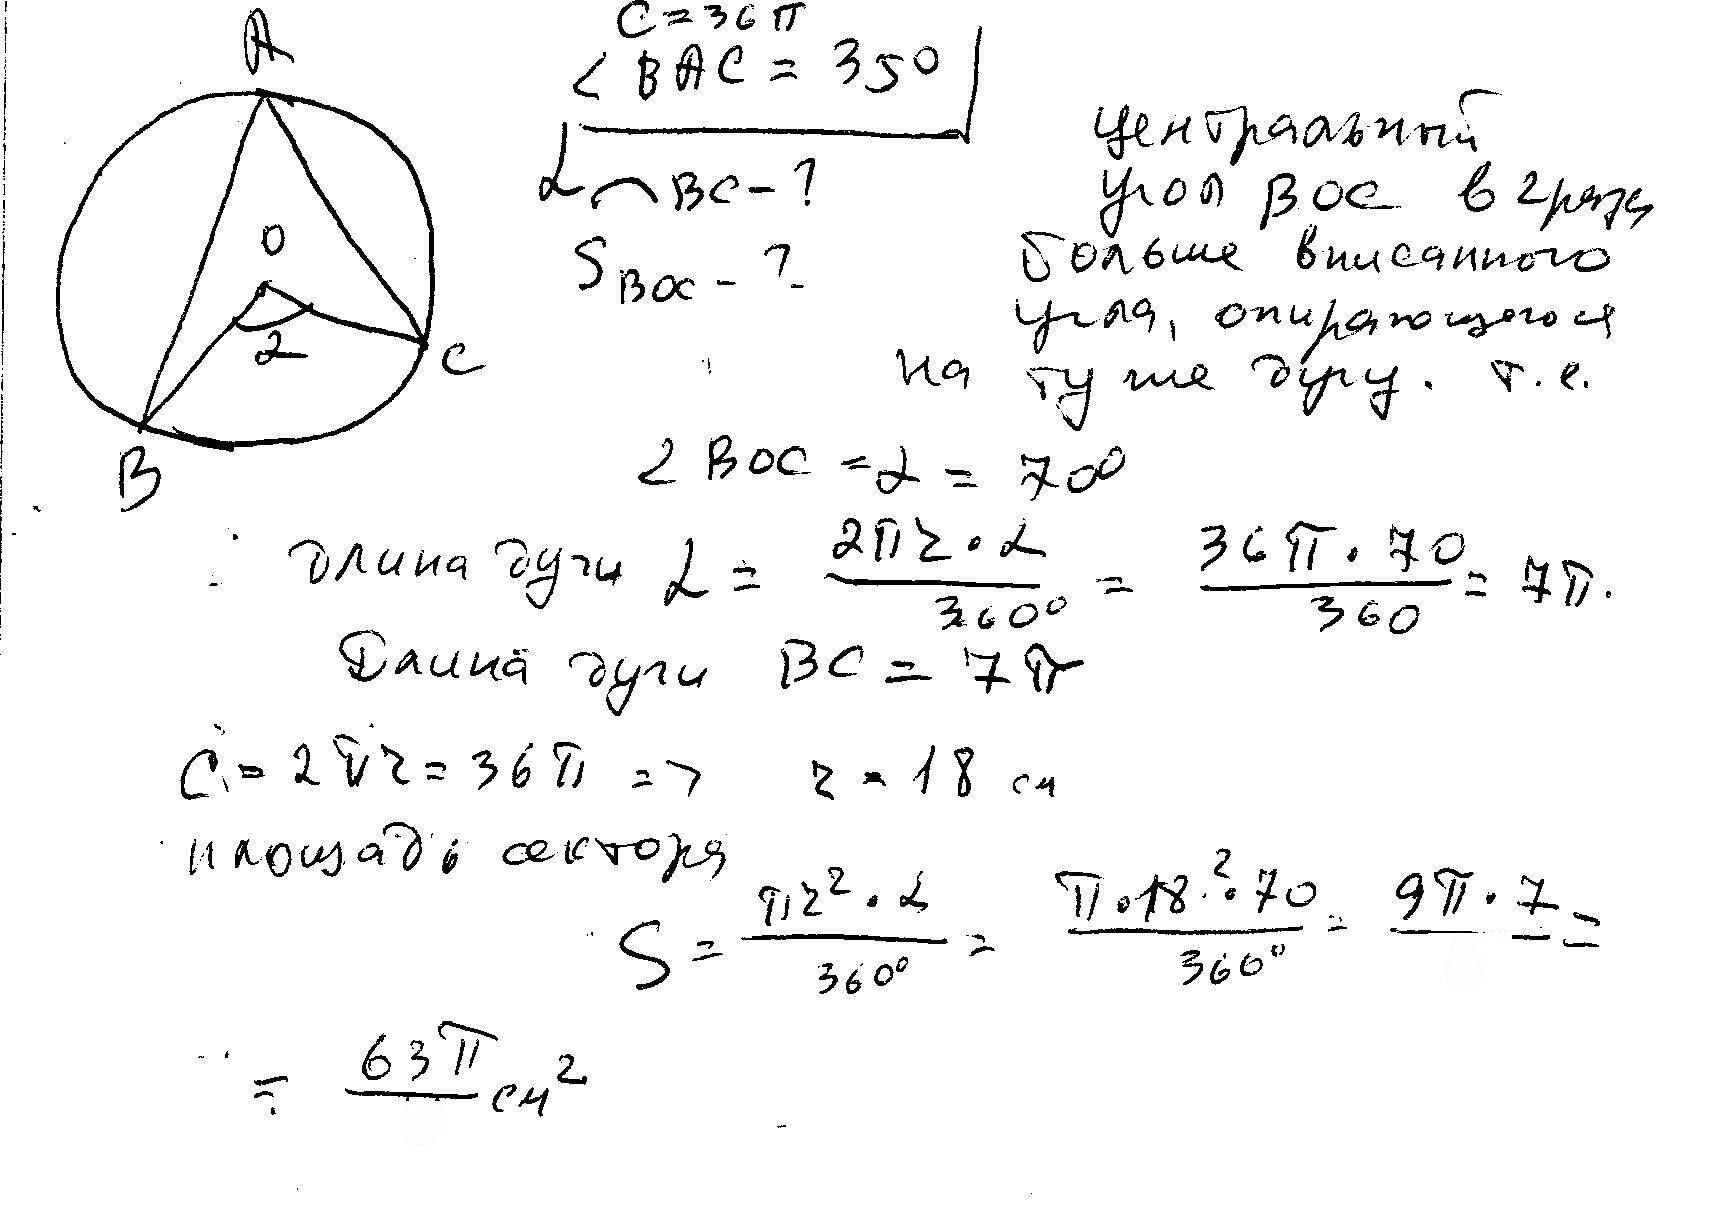 A
O
α
B
C
C = 36π
∠BAC = 35°
L ⌒ BC - ?
S BOC - ?
Центральный
угол BOC в 2 раза
больше вписанного
угла, опирающегося
на ту же дугу. т.е.
∠BOC = α = 70°
Длина дуги L = 2πr · α / 360° = 36π · 70 / 360 = 7π.
Длина дуги BC = 7π
C = 2πr = 36π => r = 18 см
площадь сектора
S = πr² · α / 360° = π · 18² · 70 / 360° = 9π · 7 =
= 63π см²